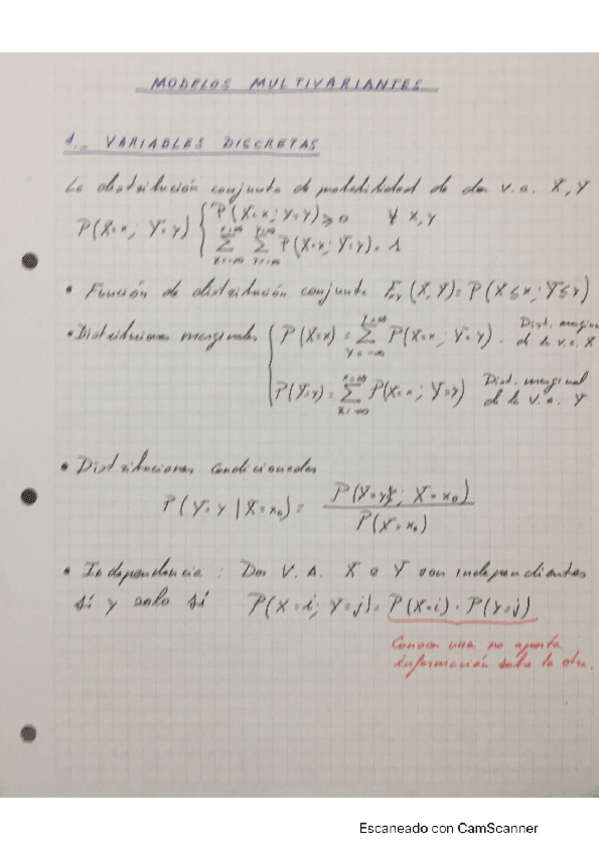 MODELOS MULTIVARIANTES
1.- VARIABLES DISCRETAS
La distribución conjunta de probabilidad de dos v.a. X, Y
P(X=x; Y=y) { P(X=x; Y=y) ≥ 0 ∀ x,y
x=∞ y=∞
∑ ∑ P(X=x; Y=y) = 1
x=-∞ y=-∞
• Función de distribución conjunta F_XY (X,Y) = P(X≤x; Y≤y)
• Distribuciones marginales { P(X=x) = ∑ P(X=x; Y=y). Dist. margina
y=∞ y=-∞ de la v.a. X
P(Y=y) = ∑ P(X=x; Y=y) Dist. marginal
x=∞ x=-∞ de la v.a. Y
• Distribuciones condicionadas
P(Y=y | X=x₀) = P(Y=y; X=x₀) / P(X=x₀)
• Independencia: Dos V.A. X e Y son independientes
sí y solo sí P(X=i; Y=j) = P(X=i) · P(Y=j)
Conocer una no aporta
información sobre la otra.
Escaneado con CamScanner